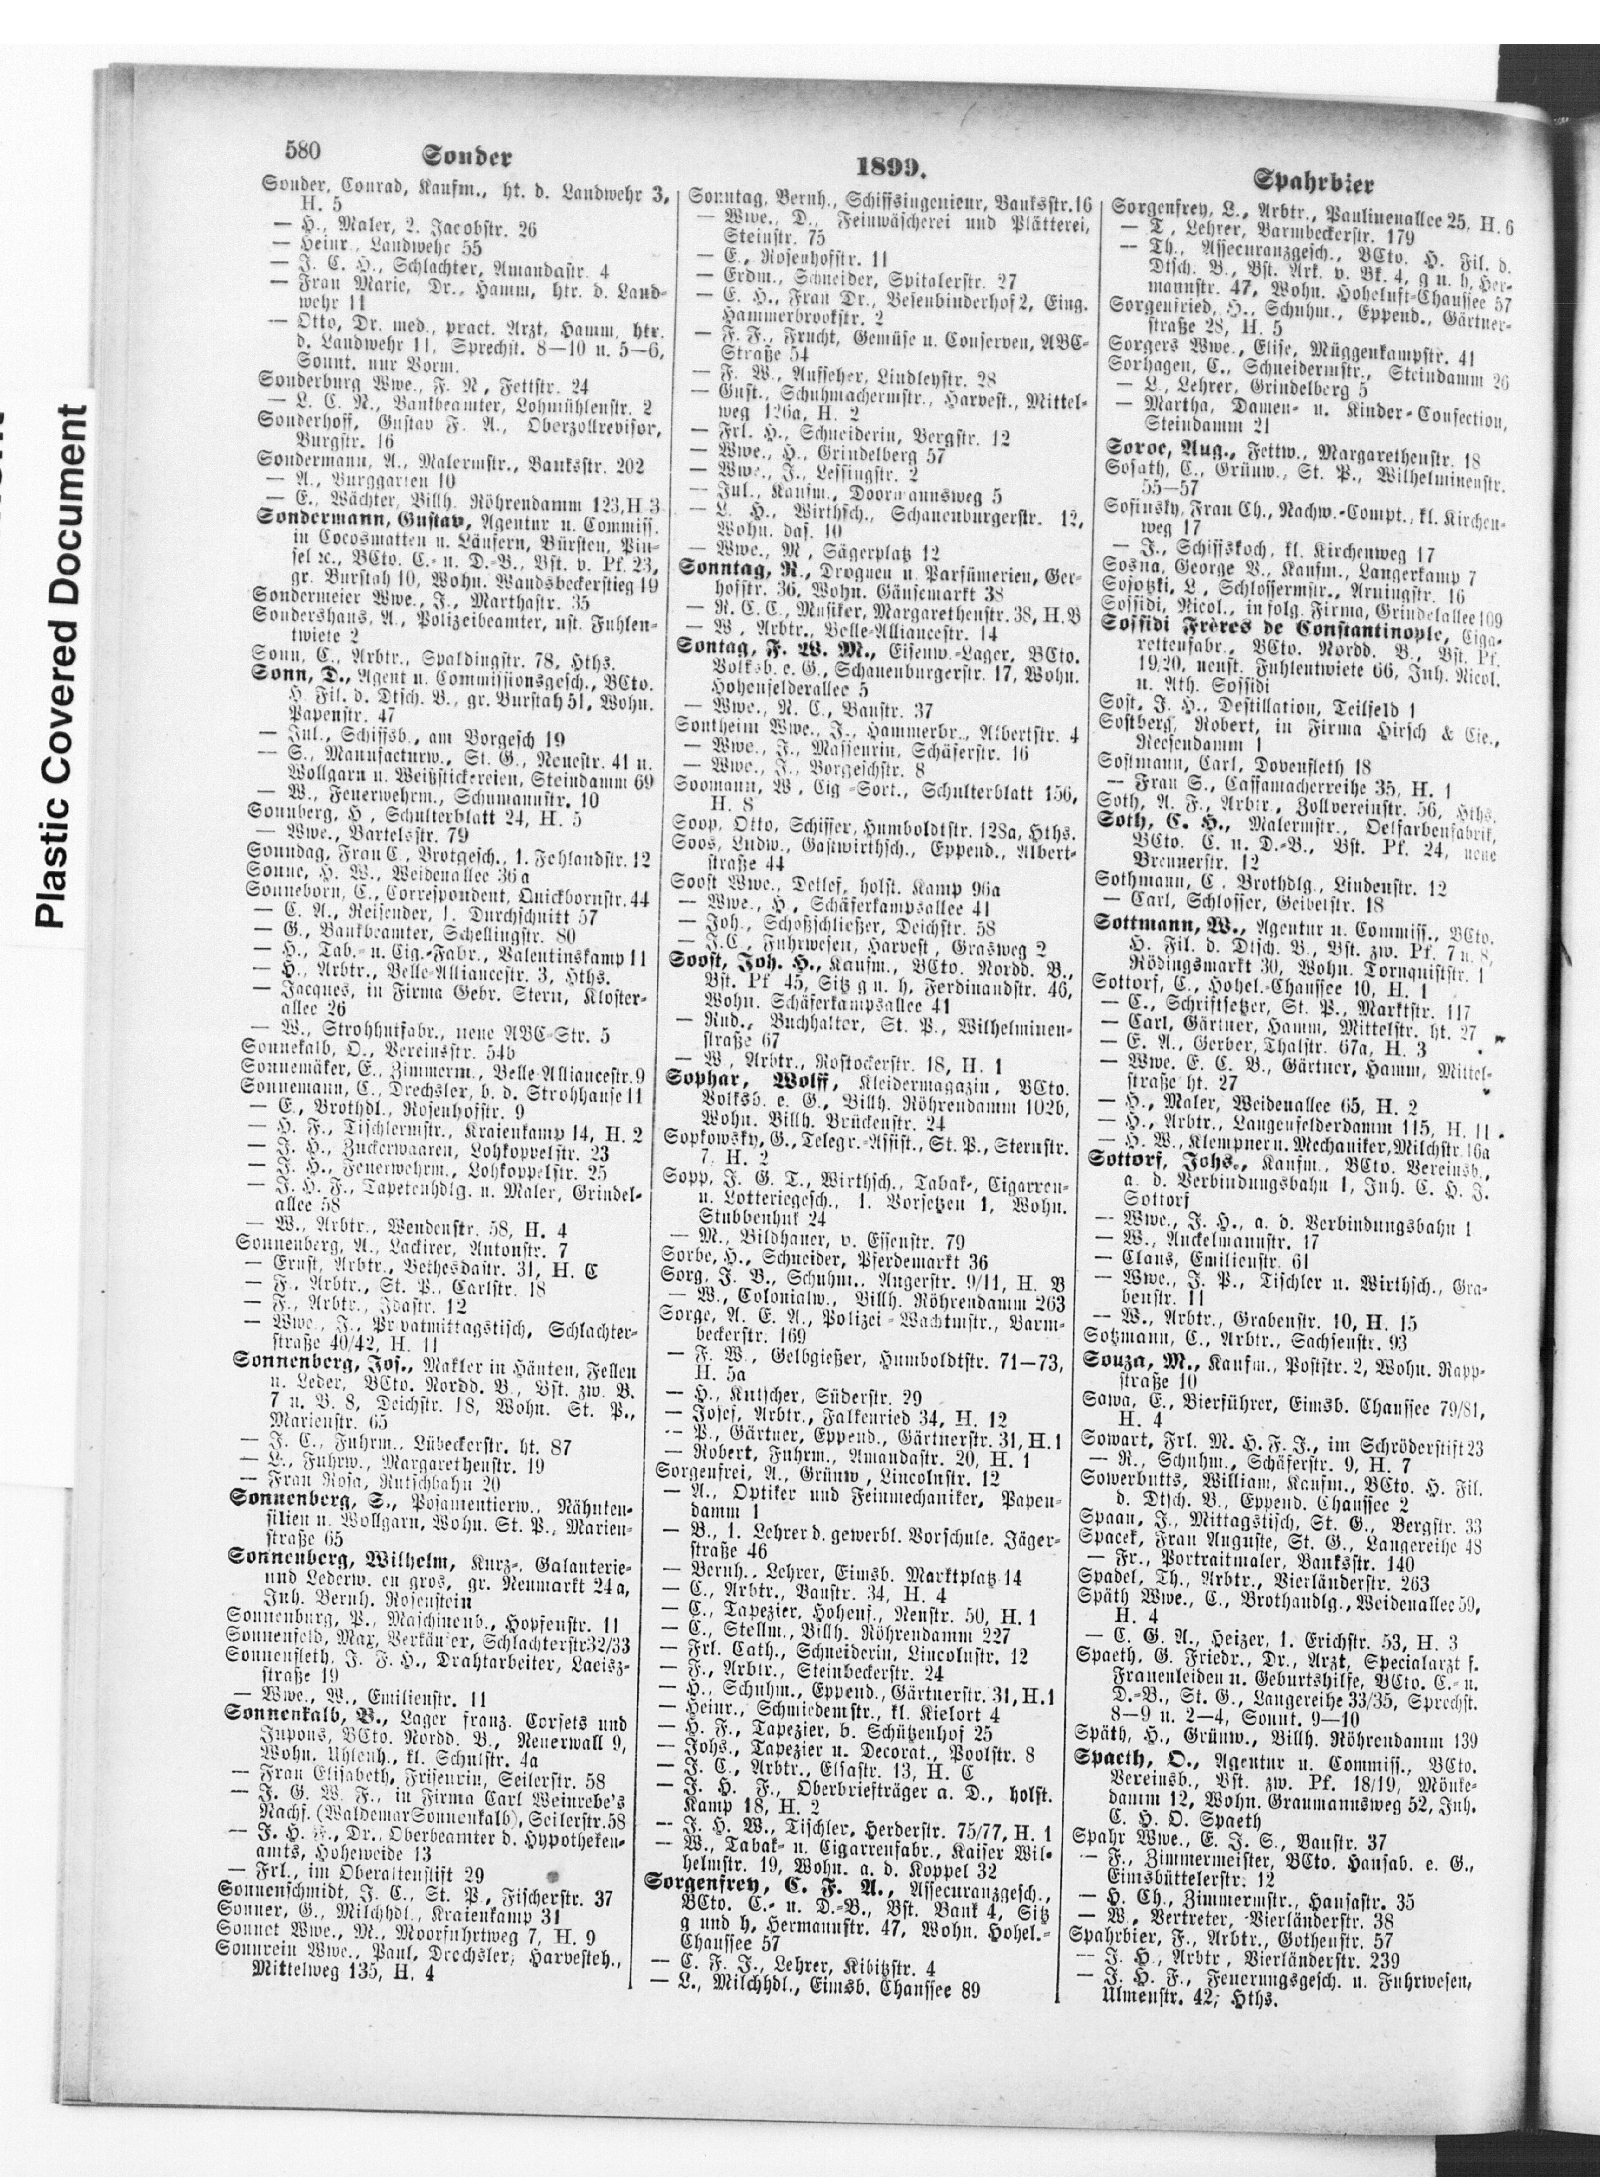 Plastic Covered Document
580 Sonder
1899.
Spahrbier
Sonder, Conrad, Kaufm., ht. d. Landwehr 3,
H. 5
— H., Maler, 2. Jacobstr. 26
— Heinr., Landwehr 55
— J. C. H., Schlachter, Amandastr. 4
— Frau Marie, Dr., Hamm, htr. d. Land-
wehr 11
— Otto, Dr. med., pract. Arzt, Hamm, htr.
d. Landwehr 11, Sprechst. 8—10 u. 5—6,
Sonnt. nur Vorm.
Sonderburg Wwe., F. N., Fettstr. 24
— L. C. N., Bankbeamter, Lohmühlenstr. 2
Sonderhoff, Gustav F. A., Oberzollrevisor,
Burgstr. 16
Sondermann, A., Malermstr., Banksstr. 202
— A., Burggarten 10
— E., Wächter, Billh. Röhrendamm 123, H. 3
Sondermann, Gustav, Agentur u. Commiss.
in Cocosmatten u. Läufern, Bürsten, Pin-
sel ꝛc., BCto. C.- u. D.-B., Bst. v. Pf. 23,
gr. Burstah 10, Wohn. Wandsbeckerstieg 49
Sondermeier Wwe., J., Marthastr. 35
Sondershaus, A., Polizeibeamter, nst. Fuhlen-
twiete 2
Sonn, C., Arbtr., Spaldingstr. 78, Hths.
Sonn, D., Agent u. Commissionsgesch., BCto.
H. Fil. d. Dtsch. B., gr. Burstah 51, Wohn.
Papenstr. 47
— Jul., Schiffsb., am Borgesch 19
— S., Manufacturw., St. G., Neuestr. 41 u.
Wollgarn u. Weißstickereien, Steindamm 69
— W., Feuerwehrm., Schumannstr. 10
Sonnberg, H., Schulterblatt 24, H. 5
— Wwe., Bartelsstr. 79
Sonndag, Frau C., Brotgesch., 1. Fehlandstr. 12
Sonne, H. W., Weidenallee 36a
Sonneborn, C., Correspondent, Quickbornstr. 44
— C. A., Reisender, 1. Durchschnitt 57
— G., Bankbeamter, Schellingstr. 80
— H., Tab.- u. Cig.-Fabr., Valentinskamp 11
— H., Arbtr., Belle-Alliancestr. 3, Hths.
— Jacques, in Firma Gebr. Stern, Kloster-
allee 26
— W., Strohhutfabr., neue ABC-Str. 5
Sonnekalb, O., Vereinsstr. 54b
Sonnemäker, E., Zimmerm., Belle-Alliancestr. 9
Sonnemann, C., Drechsler, b. d. Strohhause 11
— E., Brothdl., Rosenhofstr. 9
— H. F., Tischlermstr., Kraienkamp 14, H. 2
— J. H., Zuckerwaaren, Lohkoppelstr. 23
— J. H., Feuerwehrm., Lohkoppelstr. 25
— J. H. F., Tapetenhdlg. u. Maler, Grindel-
allee 58
— W., Arbtr., Wendenstr. 58, H. 4
Sonnenberg, A., Lackirer, Antonstr. 7
— Ernst, Arbtr., Bethesdastr. 31, H. C
— F., Arbtr., St. P., Carlstr. 18
— F., Arbtr., Idastr. 12
— Wwe., J., Privatmittagstisch, Schlachter-
straße 40/42, H. 11
Sonnenberg, Jos., Makler in Häuten, Fellen
u. Leder, BCto. Nordd. B., Bst. zw. B.
7 u. B. 8, Deichstr. 18, Wohn. St. P.,
Marienstr. 65
— J. C., Fuhrm., Lübeckerstr. ht. 87
— L., Fuhrw., Margarethenstr. 19
— Frau Rosa, Rutschbahn 20
Sonnenberg, S., Posamentierw., Nähuten-
silien u. Wollgarn, Wohn. St. P., Marien-
straße 65
Sonnenberg, Wilhelm, Kurz-, Galanterie-
und Lederw. en gros, gr. Neumarkt 24a,
Inh. Bernh. Rosenstein
Sonnenburg, P., Maschinenb., Hopfenstr. 11
Sonnenfeld, Max, Verkäufer, Schlachterstr 32/33
Sonnenfleth, J. F. H., Drahtarbeiter, Laeisz-
straße 19
— Wwe., W., Emilienstr. 11
Sonnenkalb, B., Lager franz. Corsets und
Jupons, BCto. Nordd. B., Neuerwall 9,
Wohn. Uhlenh., kl. Schulstr. 4a
— Frau Elisabeth, Friseurin, Seilerstr. 58
— J. G. W. F., in Firma Carl Weinrebe's
Nachf. (Waldemar Sonnenkalb), Seilerstr. 58
— J. H., Dr., Oberbeamter d. Hypotheken-
amts, Hoheweide 13
— Frl., im Oberaltenstift 29
Sonnenschmidt, J. C., St. P., Fischerstr. 37
Sonner, G., Milchhdl., Kraienkamp 31
Sonnet Wwe., M., Moorfuhrtweg 7, H. 9
Sonnrein Wwe., Paul, Drechsler, Harvesteh.,
Mittelweg 135, H. 4
Sonntag, Bernh., Schiffsingenieur, Banksstr. 16
— Wwe., D., Feinwäscherei und Plätterei,
Steinstr. 75
— E., Rosenhofstr. 11
— Erdm., Schneider, Spitalerstr. 27
— E. H., Frau Dr., Besenbinderhof 2, Eing.
Hammerbrookstr. 2
— F. F., Frucht, Gemüse u. Conserven, ABC-
Straße 54
— F. W., Aufseher, Lindleystr. 28
— Gust., Schuhmachermstr., Harvest., Mittel-
weg 126a, H. 2
— Frl. H., Schneiderin, Bergstr. 12
— Wwe., H., Grindelberg 57
— Wwe., J., Lessingstr. 2
— Jul., Kaufm., Doormannsweg 5
— L. H., Wirthsch., Schauenburgerstr. 12,
Wohn. das. 10
— Wwe., M., Sägerplatz 12
Sonntag, R., Droguen u. Parfümerien, Ger-
hofstr. 36, Wohn. Gänsemarkt 38
— R. C. C., Musiker, Margarethenstr. 38, H. B
— W., Arbtr., Belle-Alliancestr. 14
Sontag, F. W. M., Eisenw.-Lager, BCto.
Volksb. e. G., Schauenburgerstr. 17, Wohn.
Hohenfelderallee 5
— Wwe., R. C., Baustr. 37
Sontheim Wwe., J., Hammerbr., Albertstr. 4
— Wwe., J., Masseurin, Schäferstr. 16
— Wwe., J., Borgeschstr. 8
Soomann, W., Cig.-Sort., Schulterblatt 156,
H. 8
Soop, Otto, Schiffer, Humboldtstr. 128a, Hths.
Soos, Ludw., Gastwirthsch., Eppend., Albert-
straße 44
Soost Wwe., Detlef, holst. Kamp 96a
— Wwe., H., Schäferkampsallee 41
— Joh., Schoßschließer, Deichstr. 58
— J. C., Fuhrwesen, Harvest., Grasweg 2
Soost, Joh. H., Kaufm., BCto. Nordd. B.,
Bst. Pf. 45, Sitz g u. h, Ferdinandstr. 46,
Wohn. Schäferkampsallee 41
— Rud., Buchhalter, St. P., Wilhelminen-
straße 67
— W., Arbtr., Rostockerstr. 18, H. 1
Sophar, Wolff, Kleidermagazin, BCto.
Volksb. e. G., Billh. Röhrendamm 102b,
Wohn. Billh. Brückenstr. 24
Sopkowsky, G., Telegr.-Assist., St. P., Sternstr.
7, H. 2
Sopp, J. G. T., Wirthsch., Tabak-, Cigarren-
u. Lotteriegesch., 1. Vorsetzen 1, Wohn.
Stubbenhuk 24
— M., Bildhauer, v. Essenstr. 79
Sorbe, H., Schneider, Pferdemarkt 36
Sorg, J. B., Schuhm., Angerstr. 9/11, H. B
— W., Colonialw., Billh. Röhrendamm 263
Sorge, A. E. A., Polizei-Wachtmstr., Barm-
beckerstr. 169
— F. W., Gelbgießer, Humboldtstr. 71—73,
H. 5a
— H., Kutscher, Süderstr. 29
— Josef, Arbtr., Falkenried 34, H. 12
— P., Gärtner, Eppend., Gärtnerstr. 31, H. 1
— Robert, Fuhrm., Amandastr. 20, H. 1
Sorgenfrei, A., Grünw., Lincolnstr. 12
— A., Optiker und Feinmechaniker, Papen-
damm 1
— B., 1. Lehrer d. gewerbl. Vorschule, Jäger-
straße 46
— Bernh., Lehrer, Eimsb. Marktplatz 14
— C., Arbtr., Baustr. 34, H. 4
— C., Tapezier, Hohenf., Neustr. 50, H. 1
— C., Stellm., Billh. Röhrendamm 227
— Frl. Cath., Schneiderin, Lincolnstr. 12
— F., Arbtr., Steinbeckerstr. 24
— H., Schuhm., Eppend., Gärtnerstr. 31, H. 1
— Heinr., Schmiedemstr., kl. Kielort 4
— H. F., Tapezier, b. Schützenhof 25
— Johs., Tapezier u. Decorat., Poolstr. 8
— J. C., Arbtr., Elsastr. 13, H. C
— J. H. F., Oberbriefträger a. D., holst.
Kamp 18, H. 2
— J. H. W., Tischler, Herderstr. 75/77, H. 1
— W., Tabak- u. Cigarrenfabr., Kaiser Wil-
helmstr. 19, Wohn. a. d. Koppel 32
Sorgenfrey, C. F. A., Assecuranzgesch.,
BCto. C.- u. D.-B., Bst. Bank 4, Sitz
g und h, Hermannstr. 47, Wohn. Hohel.-
Chaussee 57
— C. F. J., Lehrer, Kibitzstr. 4
— L., Milchhdl., Eimsb. Chaussee 89
Sorgenfrey, L., Arbtr., Paulinenallee 25, H. 6
— T., Lehrer, Barmbeckerstr. 179
— Th., Assecuranzgesch., BCto. H. Fil. d.
Dtsch. B., Bst. Ark. v. Bk. 4, g u. h, Her-
mannstr. 47, Wohn. Hoheluft-Chaussee 57
Sorgenfried, H., Schuhm., Eppend., Gärtner-
straße 28, H. 5
Sorgers Wwe., Elise, Müggenkampstr. 41
Sorhagen, C., Schneidermstr., Steindamm 26
— L., Lehrer, Grindelberg 5
— Martha, Damen- u. Kinder-Confection,
Steindamm 21
Soroe, Aug., Fettw., Margarethenstr. 18
Sosath, C., Grünw., St. P., Wilhelminenstr.
55—57
Sosinsky, Frau Ch., Nachw.-Compt., kl. Kirchen-
weg 17
— J., Schiffskoch, kl. Kirchenweg 17
Sosna, George V., Kaufm., Langerkamp 7
Sosotzki, L., Schlossermstr., Arningstr. 16
Sossidi, Nicol., in folg. Firma, Grindelallee 109
Sossidi Frères de Constantinople, Ciga-
rettenfabr., BCto. Nordd. B., Bst. Pf.
19/20, neust. Fuhlentwiete 66, Inh. Nicol.
u. Ath. Sossidi
Sost, J. H., Destillation, Teilfeld 1
Sostberg, Robert, in Firma Hirsch & Cie.,
Reesendamm 1
Sostmann, Carl, Dovenfleth 18
— Frau S., Caffamacherreihe 35, H. 1
Soth, A. F., Arbtr., Zollvereinstr. 56, Hths.
Soth, C. H., Malermstr., Oelfarbenfabrik,
BCto. C. u. D.-B., Bst. Pf. 24, neue
Brennerstr. 12
Sothmann, C., Brothdlg., Lindenstr. 12
— Carl, Schlosser, Geibelstr. 18
Sottmann, W., Agentur u. Commiss., BCto.
H. Fil. d. Dtsch. B., Bst. zw. Pf. 7 u. 8,
Rödingsmarkt 30, Wohn. Tornquiststr. 1
Sottorf, C., Hohel.-Chaussee 10, H. 1
— C., Schriftsetzer, St. P., Marktstr. 117
— Carl, Gärtner, Hamm, Mittelstr. ht. 27
— E. A., Gerber, Thalstr. 67a, H. 3
— Wwe. E. C. B., Gärtner, Hamm, Mittel-
straße ht. 27
— H., Maler, Weidenallee 65, H. 2
— H., Arbtr., Langenfelderdamm 115, H. 11
— H. W., Klempner u. Mechaniker, Milchstr. 16a
Sottorf, Johs., Kaufm., BCto. Vereinsb.,
a. d. Verbindungsbahn 1, Inh. C. H. J.
Sottorf
— Wwe., J. H., a. d. Verbindungsbahn 1
— W., Auckelmannstr. 17
— Claus, Emilienstr. 61
— Wwe., J. P., Tischler u. Wirthsch., Gra-
benstr. 11
— W., Arbtr., Grabenstr. 10, H. 15
Sotzmann, C., Arbtr., Sachsenstr. 93
Souza, M., Kaufm., Poststr. 2, Wohn. Rapp-
straße 10
Sawa, E., Bierführer, Eimsb. Chaussee 79/81,
H. 4
Sowart, Frl. M. H. F. J., im Schröderstift 23
— R., Schuhm., Schäferstr. 9, H. 7
Sowerbutts, William, Kaufm., BCto. H. Fil.
d. Dtsch. B., Eppend. Chaussee 2
Spaan, J., Mittagstisch, St. G., Bergstr. 33
Spacek, Frau Auguste, St. G., Langereihe 48
— Fr., Portraitmaler, Banksstr. 140
Spadel, Th., Arbtr., Vierländerstr. 263
Späth Wwe., C., Brothandlg., Weidenallee 59,
H. 4
— C. G. A., Heizer, 1. Erichstr. 53, H. 3
Spaeth, G. Friedr., Dr., Arzt, Specialarzt f.
Frauenleiden u. Geburtshilfe, BCto. C.- u.
D.-B., St. G., Langereihe 33/35, Sprechst.
8—9 u. 2—4, Sonnt. 9—10
Späth, H., Grünw., Billh. Röhrendamm 139
Spaeth, O., Agentur u. Commiss., BCto.
Vereinsb., Bst. zw. Pf. 18/19, Mönke-
damm 12, Wohn. Graumannsweg 52, Inh.
C. H. O. Spaeth
Spahr Wwe., E. J. S., Baustr. 37
— F., Zimmermeister, BCto. Hansab. e. G.,
Eimsbüttelerstr. 12
— H. Ch., Zimmermstr., Hansastr. 35
— W., Vertreter, Vierländerstr. 38
Spahrbier, F., Arbtr., Gothenstr. 57
— J. H., Arbtr., Vierländerstr. 239
— J. H. F., Feuerungsgesch. u. Fuhrwesen,
Ulmenstr. 42, Hths.